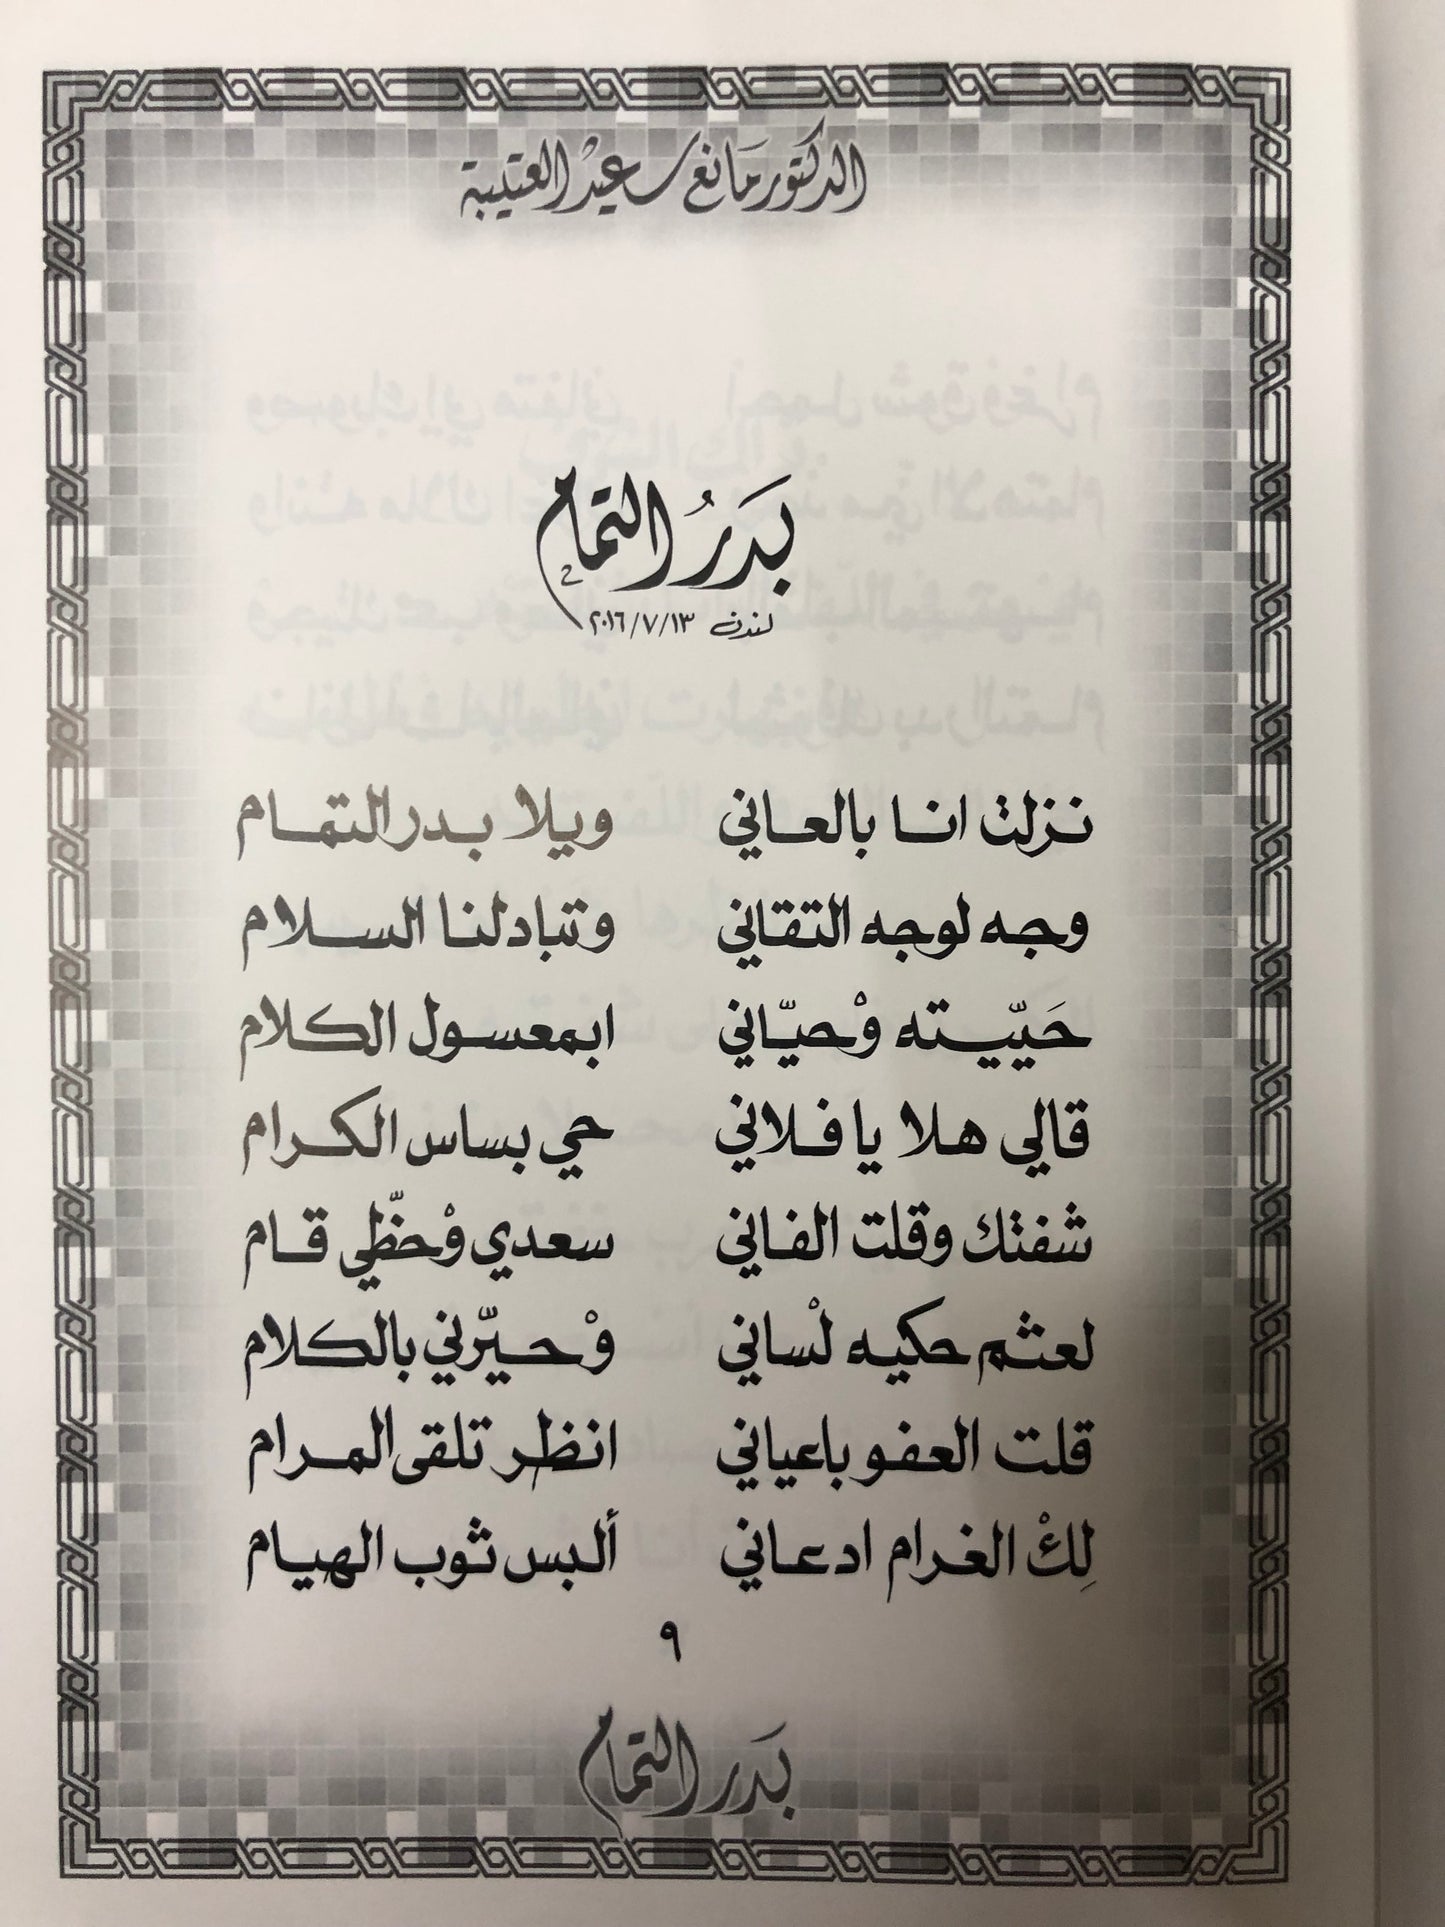 الدكتور مانع سعيد العتيبة
بَدَرُ التمام
لندن ٢٠١٦/٧/١٣
نزلت انا بالعاني ويلا بدر التمام
وجه لوجه التقاني وتبادلنا السلام
حَيّيته وْحيّاني ابمعسول الكلام
قالي هلا يا فلاني حي بساس الكرام
شفتك وقلت الفاني سعدي وْحظّي قام
لعثم حكيه لْساني وْحيّرني بالكلام
قلت العفو باعياني انظر تلقى المرام
لِكْ الغرام ادعاني ألبس ثوب الهيام
٩
بَدَر التمام